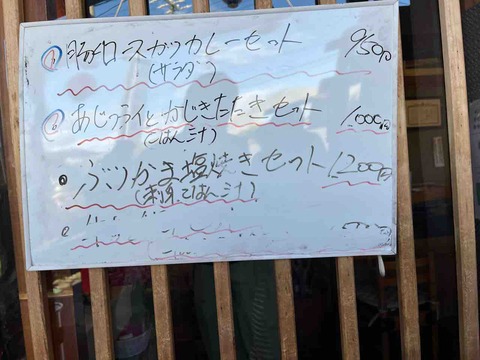 ① 豚ロースカツカレーセット 950円
(サラダ)
② あじフライとかじきたたきセット 1,000円
(ごはんミ汁)
ぶりかま塩焼きセット 1,200円
(刺身ごはんミ汁)